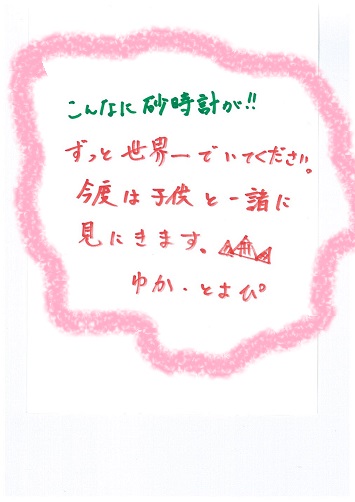 こんなに砂時計が!!
ずっと世界一でいてください。
今度は子供と一諸に
見にきます。
ゆか・とよぴ